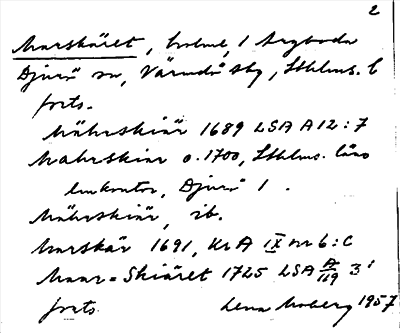 2
Marskäret, holme, i Aygboda
Djurö sn, Värmdö skg, Sthlms. l
forts.
Mährskiär 1689 LSA A 12:7
Mahrskiar o. 1700, Sthlms. läns
lmkontor, Djurö 1.
Mährskiär, ib.
Marskär 1691, KrA IX nr 6:C
Maar=Skiäret 1725 LSA A/119 3¹
forts. Lena Moberg 1957